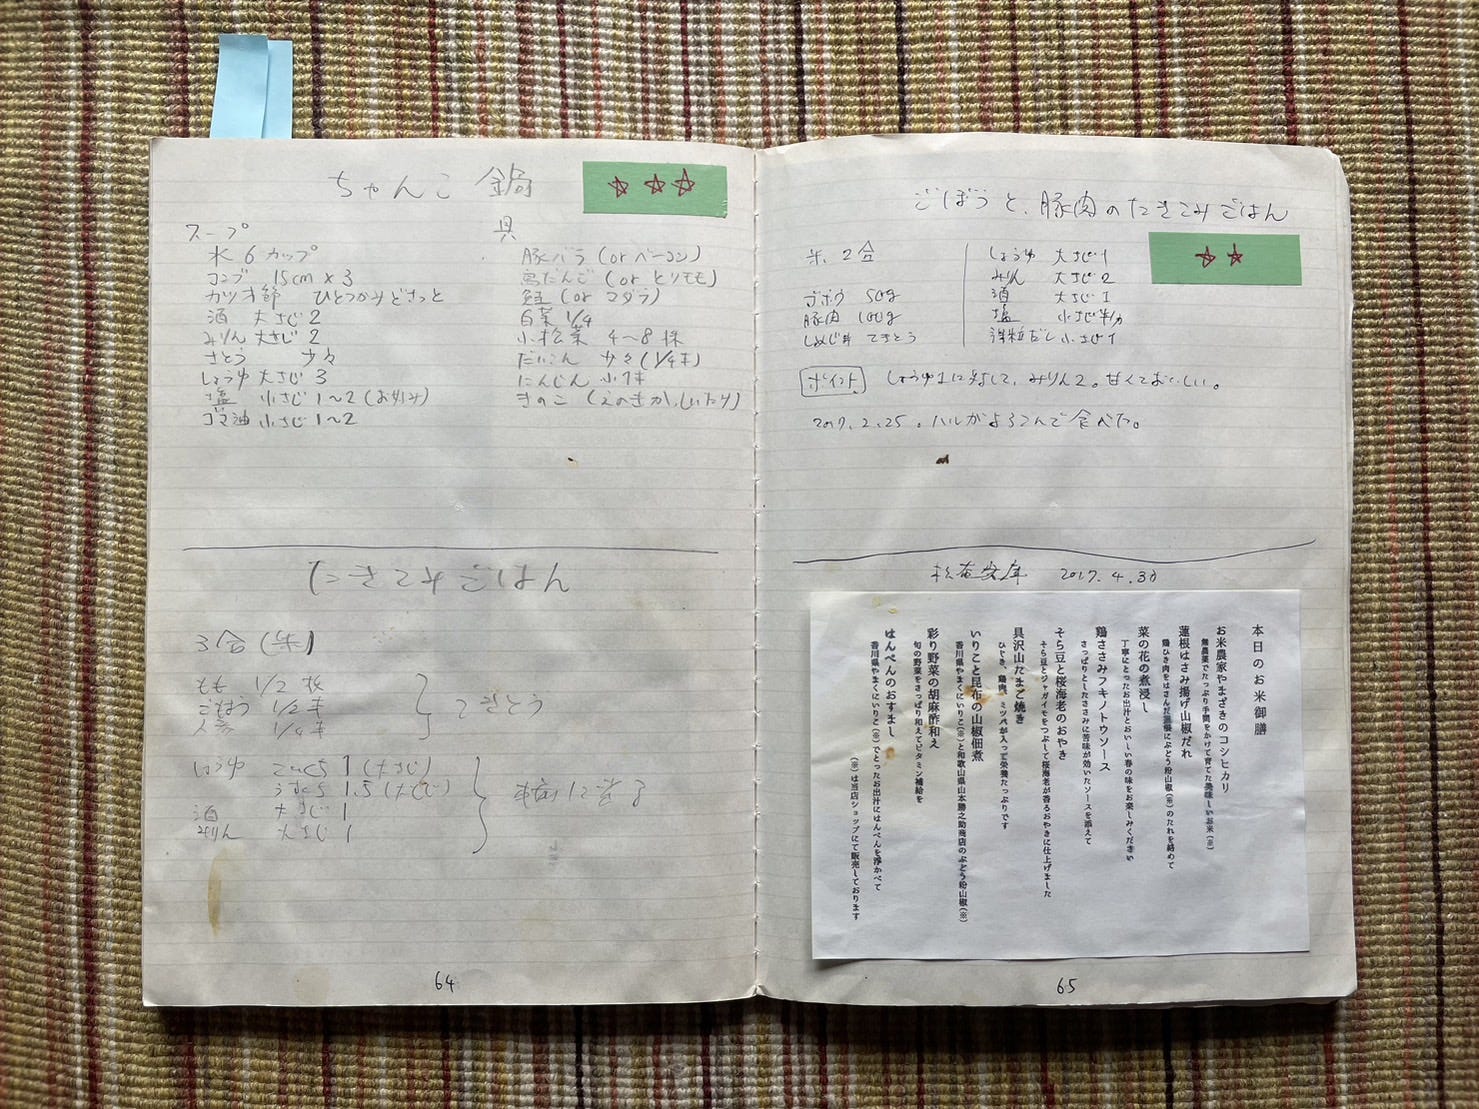 ちゃんこ鍋
☆☆☆
スープ
水 6カップ
コンブ 15cm×3
カツオ節 ひとつかみどさっと
酒 大さじ2
みりん 大さじ2
さとう 少々
しょうゆ 大さじ3
塩 小さじ1〜2(お好み)
ゴマ油 小さじ1〜2
具
豚バラ(orベーコン)
鳥だんご(orとりモモ)
鮭(orマダラ)
白菜 1/4
小松菜 4〜8株
だいこん 少々(1/4本)
にんじん 小1本
きのこ(えのきか、しいたけ)
たきこみごはん
3合(米)
もも 1/2枚
ごぼう 1/2本
人参 1/4本
てきとう
しょうゆ こいくち 1(大さじ)
うすくち 1.5(大さじ)
酒 大さじ1
みりん 大さじ1
64
ごぼうと、豚肉のたきこみごはん
☆☆
米、2合
ゴボウ 50g
豚肉 100g
しめじ等 てきとう
しょうゆ 大さじ1
みりん 大さじ2
酒 大さじ1
塩 小さじ半分
顆粒だし 小さじ1
ポイント しょうゆ1に対して、みりん2。甘くておいしい。
2017.2.25。ハルがよろこんで食べた。
松庵文庫 2017.4.30
本日のお米御膳
お米農家やまざきのコシヒカリ
無農薬でたっぷり手間をかけて育てた美味しいお米(※)
蓮根はさみ揚げ山椒だれ
鶏ひき肉をはさんだ蓮根にぶどう粉山椒(※)のたれを絡めて
菜の花の煮浸し
丁寧にとったお出汁とおいしい春の味をお楽しみください
鶏ささみフキノトウソース
さっぱりとしたささみに苦味が効いたソースを添えて
そら豆と桜海老のおやき
そら豆とジャガイモをつぶして桜海老が香るおやきに仕上げました
具沢山たまご焼き
ひじき、鶏肉、ミツバが入って栄養たっぷりです
いりこと昆布の山椒佃煮
香川県やまくにいりこ(※)と和歌山県山本勝之助商店のぶどう粉山椒(※)
彩り野菜の胡麻酢和え
旬の野菜をさっぱり和えてビタミン補給を
はんぺんのおすまし
香川県やまくにいりこ(※)でとったお出汁にはんぺんを浮かべて
(※)は当店ショップにて販売しております
65